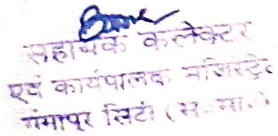 सहायक कलेक्टर
एवं कार्यपालक मजिस्ट्रेट
गंगापुर सिटी (स. मा.)